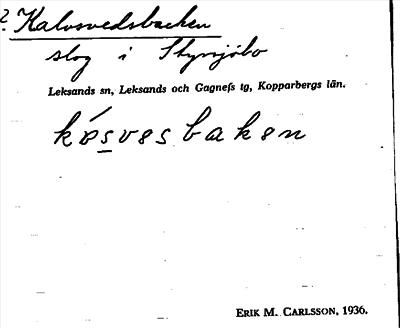 ? Kalvsvedsbacken
slog i Styrsjöbo
Leksands sn, Leksands och Gagnefs tg, Kopparbergs län.
kɷ́s̲vesbaken
ERIK M. CARLSSON, 1936.